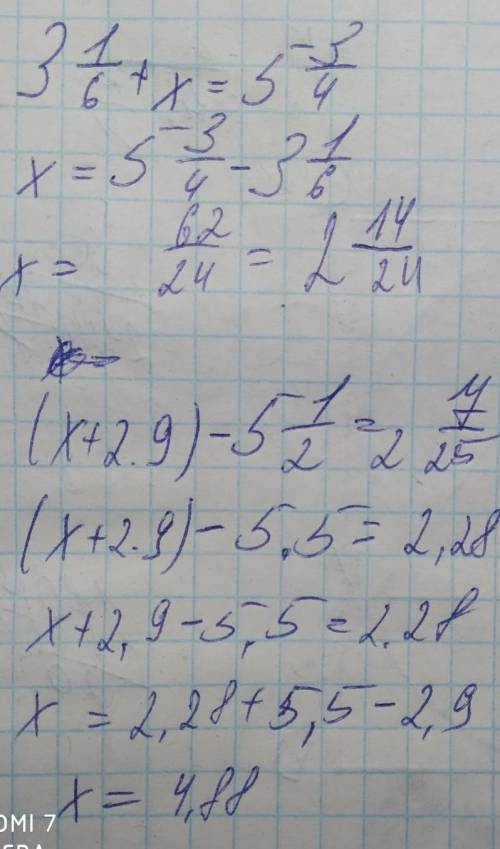 3 1/6 + x = 5 3/4
x = 5 3/4 - 3 1/6
x = 62/24 = 2 14/24
(x+2.9) - 5 1/2 = 2 7/25
(x+2.9) - 5,5 = 2,28
x+2,9-5,5=2.28
x = 2,28+5,5-2,9
x = 4,88
OMI 7